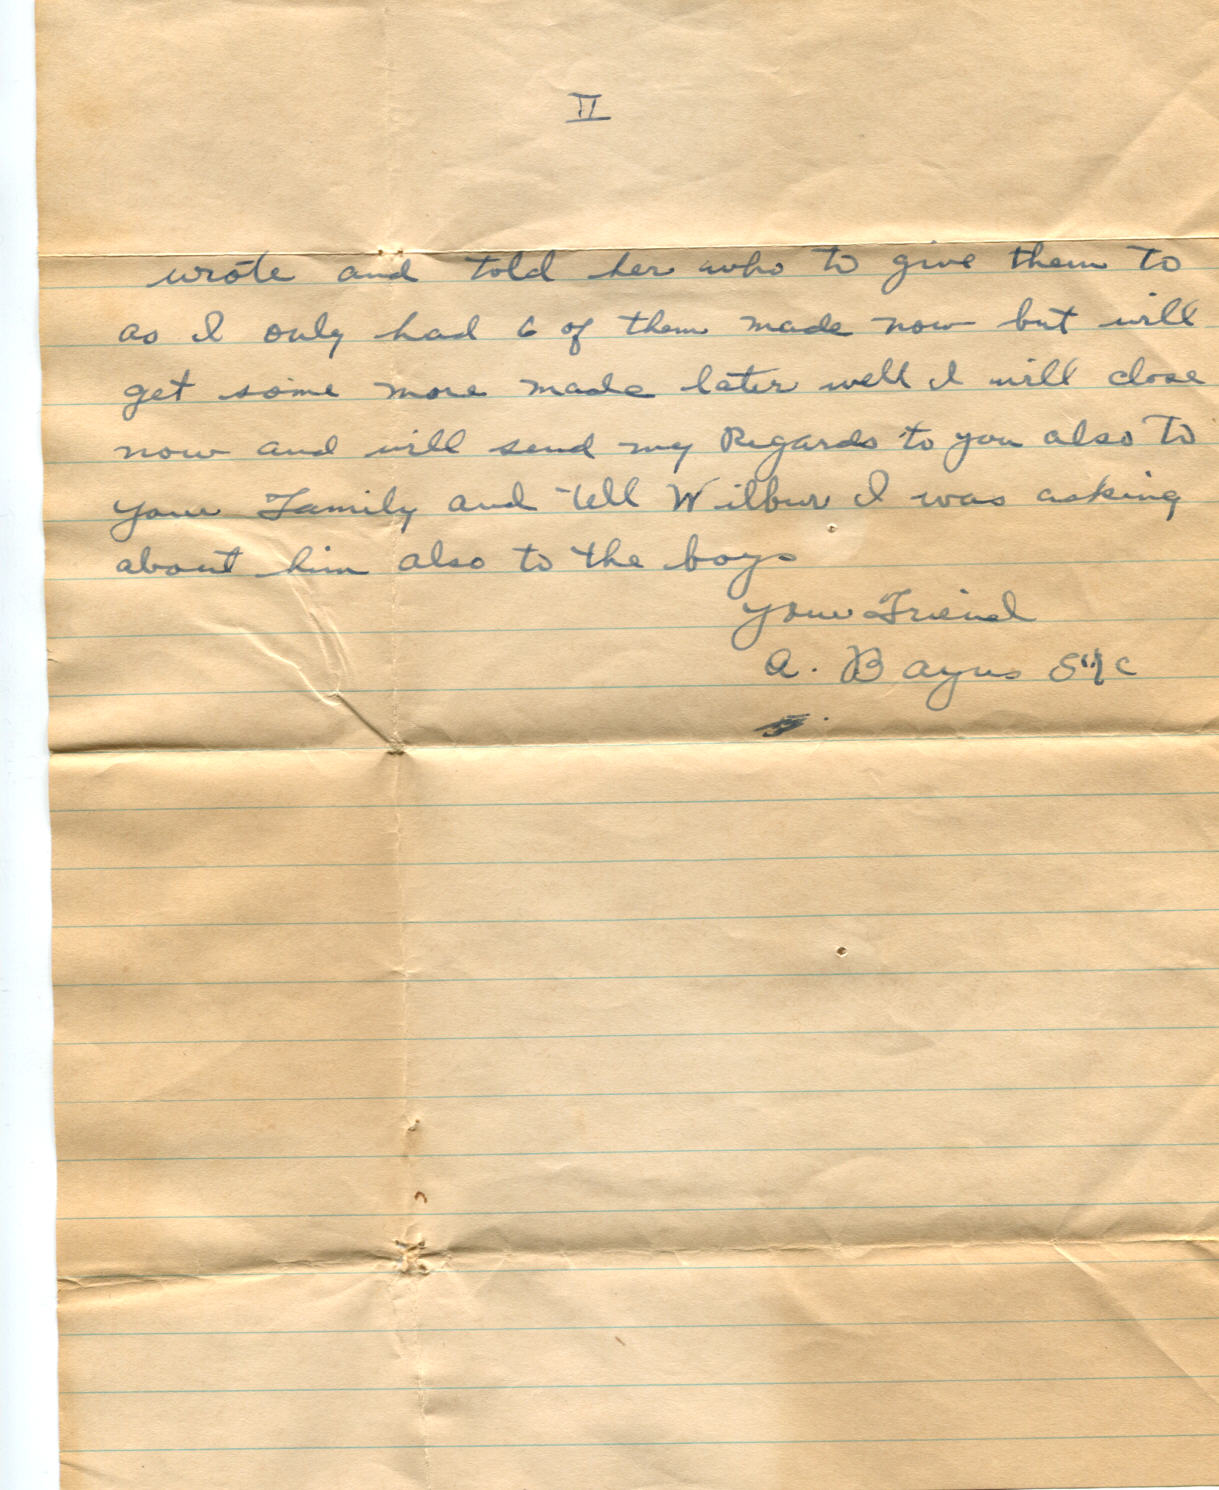 II
wrote and told her who to give them to
as I only had 6 of them made now but will
get some more made later well I will close
now and will send my Regards to you also to
your Family and tell Wilbur I was asking
about him also to the boys
your Friend
A. Bayus